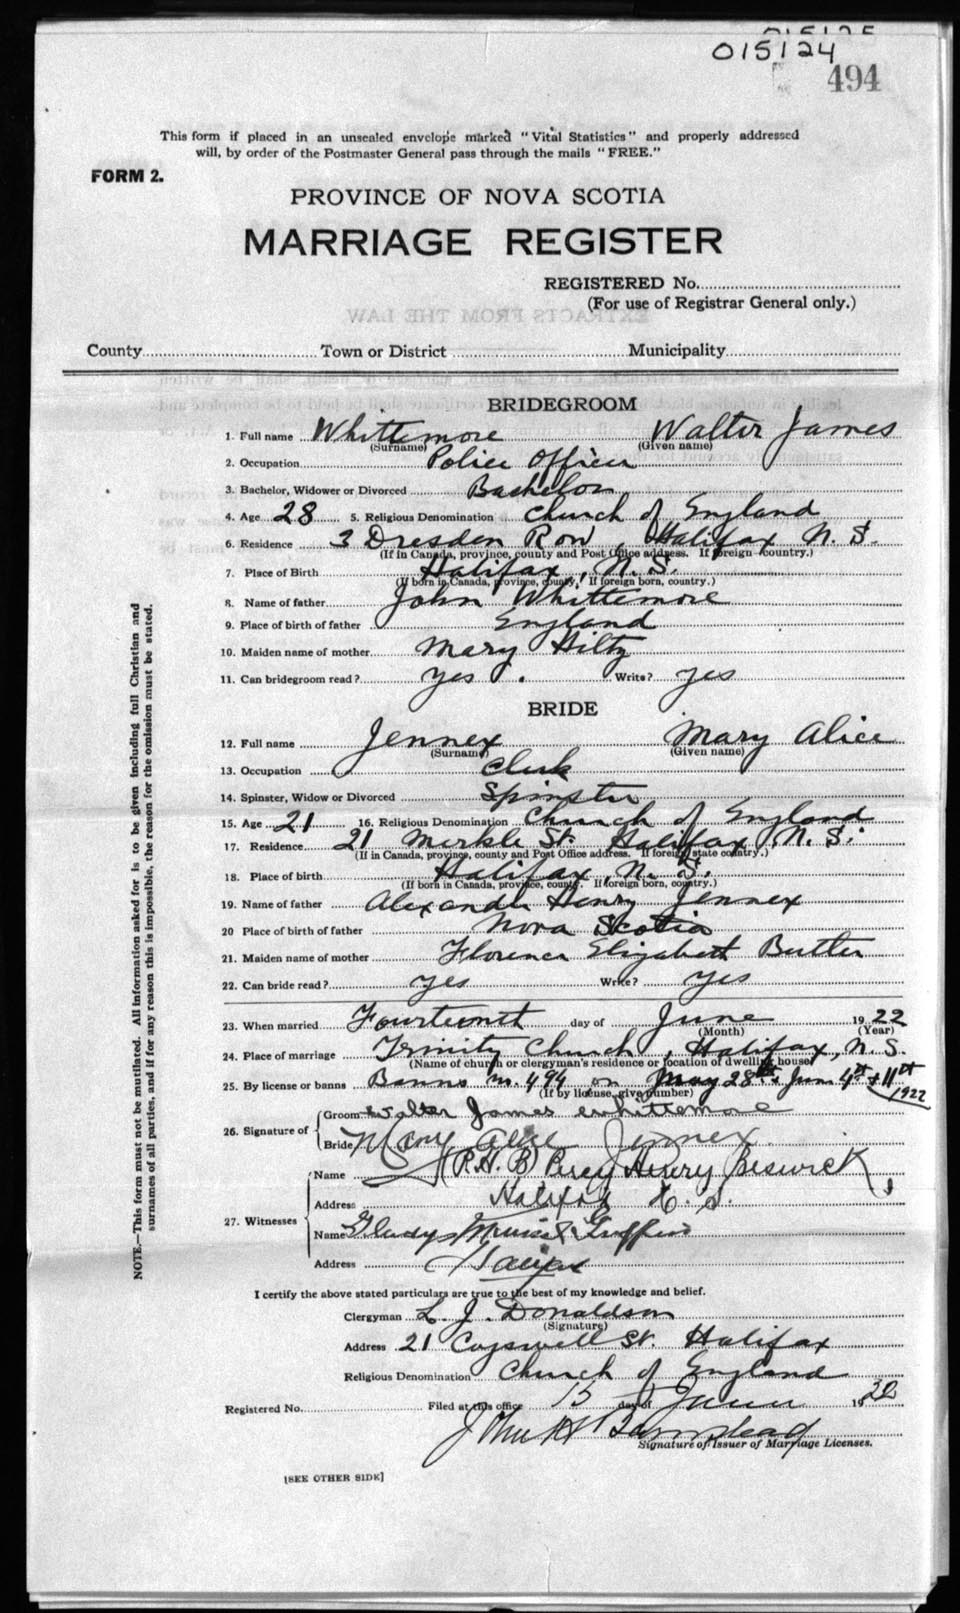 015125
015124
494
This form if placed in an unsealed envelope marked "Vital Statistics" and properly addressed
will, by order of the Postmaster General pass through the mails "FREE."
FORM 2.
PROVINCE OF NOVA SCOTIA
MARRIAGE REGISTER
REGISTERED No.
(For use of Registrar General only.)
County Town or District Municipality
BRIDEGROOM
1. Full name Whittemore Walter James
(Surname) (Given name)
2. Occupation Police Officer
3. Bachelor, Widower or Divorced Bachelor
4. Age 28 5. Religious Denomination Church of England
6. Residence 3 Dresden Row, Halifax N. S.
(If in Canada, province, county and Post Office address. If foreign country.)
7. Place of Birth Halifax, N. S.
(If born in Canada, province, county. If foreign born, country.)
8. Name of father John Whittemore
9. Place of birth of father England
10. Maiden name of mother Mary Hiltz
11. Can bridegroom read? yes. Write? yes
BRIDE
12. Full name Jennex Mary Alice
(Surname) (Given name)
13. Occupation Clerk
14. Spinster, Widow or Divorced Spinster
15. Age 21 16. Religious Denomination Church of England
17. Residence 21 Merkle St. Halifax, N. S.
(If in Canada, province, county and Post Office address. If foreign state country.)
18. Place of birth Halifax, N. S.
(If born in Canada, province, county. If foreign born, country.)
19. Name of father Alexander Henry Jennex
20 Place of birth of father Nova Scotia
21. Maiden name of mother Florence Elizabeth Butler
22. Can bride read? yes Write? yes
23. When married Fourteenth day of June 1922
(Month) (Year)
24. Place of marriage Trinity Church, Halifax, N. S.
(Name of church or clergyman's residence or location of dwelling house)
25. By license or banns Banns No. 494 on May 28th, June 4th + 11th
(If by license, give number) 1922
26. Signature of
Groom Walter James Whittemore
Bride Mary Alice Jennex
27. Witnesses
Name (P.H.B) Percy Henry Beswick
Address Halifax N. S.
Name Gladys Muriel Griffin
Address Halifax
I certify the above stated particulars are true to the best of my knowledge and belief.
Clergyman L. J. Donaldson
(Signature)
Address 21 Cogswell St. Halifax
Religious Denomination Church of England
Registered No. Filed at this office 15 day of June 1922
Signature of Issuer of Marriage Licenses.
[SEE OTHER SIDE]
NOTE.—This form must not be mutilated. All information asked for is to be given including full Christian and
surnames of all parties, and if for any reason this is impossible, the reason for the omission must be stated.